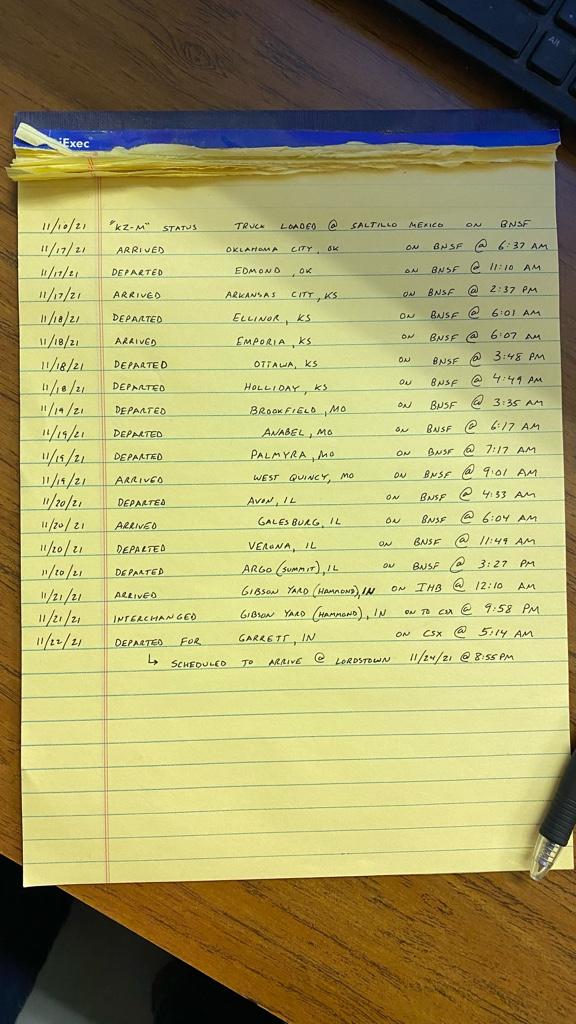 iExec
Alt
11/10/21 "KZ-M" STATUS TRUCK LOADED @ SALTILLO MEXICO ON BNSF
11/17/21 ARRIVED OKLAHOMA CITY, OK ON BNSF @ 6:37 AM
11/17/21 DEPARTED EDMOND, OK ON BNSF @ 11:10 AM
11/17/21 ARRIVED ARKANSAS CITY, KS ON BNSF @ 2:37 PM
11/18/21 DEPARTED ELLINOR, KS ON BNSF @ 6:01 AM
11/18/21 ARRIVED EMPORIA, KS ON BNSF @ 6:07 AM
11/18/21 DEPARTED OTTAWA, KS ON BNSF @ 3:48 PM
11/18/21 DEPARTED HOLLIDAY, KS ON BNSF @ 4:49 AM
11/19/21 DEPARTED BROOKFIELD, MO ON BNSF @ 3:35 AM
11/19/21 DEPARTED ANABEL, MO ON BNSF @ 6:17 AM
11/19/21 DEPARTED PALMYRA, MO ON BNSF @ 7:17 AM
11/19/21 ARRIVED WEST QUINCY, MO ON BNSF @ 9:01 AM
11/20/21 DEPARTED AVON, IL ON BNSF @ 4:33 AM
11/20/21 ARRIVED GALESBURG, IL ON BNSF @ 6:04 AM
11/20/21 DEPARTED VERONA, IL ON BNSF @ 11:49 AM
11/20/21 DEPARTED ARGO (SUMMIT), IL ON BNSF @ 3:27 PM
11/21/21 ARRIVED GIBSON YARD (HAMMOND), IN ON IHB @ 12:10 AM
11/21/21 INTERCHANGED GIBSON YARD (HAMMOND), IN ON TO CSX @ 9:58 PM
11/22/21 DEPARTED FOR GARRETT, IN ON CSX @ 5:14 AM
↳ SCHEDULED TO ARRIVE @ LORDSTOWN 11/24/21 @ 8:55PM